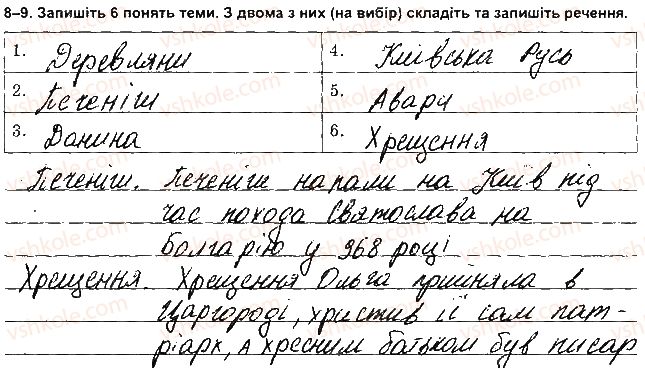 8–9. Запишіть 6 понять теми. З двома з них (на вибір) складіть та запишіть речення.
1. Деревляни
4. Київська Русь
2. Печеніги
5. Авари
3. Данина
6. Хрещення
Печеніги. Печеніги напали на Київ під
час похода Святослава на
Болгарію у 968 році
Хрещення. Хрещення Ольга прийняла в
Царгороді, христив її сам пат-
ріарх, а хресним батьком був писар